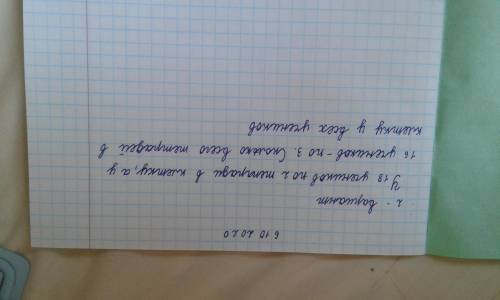 6 10 2020
2 - вариант
У 13 учеников по 2 тетради в клетку, а у
16 учеников - по 3. Сколько всего тетрадей в
клетку у всех учеников